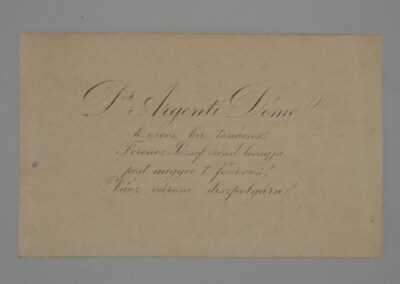 Dr Argenti Döme
h. orvos, kir. tanácsos,
Ferencz József-rend lovagja,
pest megyei t. főorvos,
Vácz városa díszpolgára.